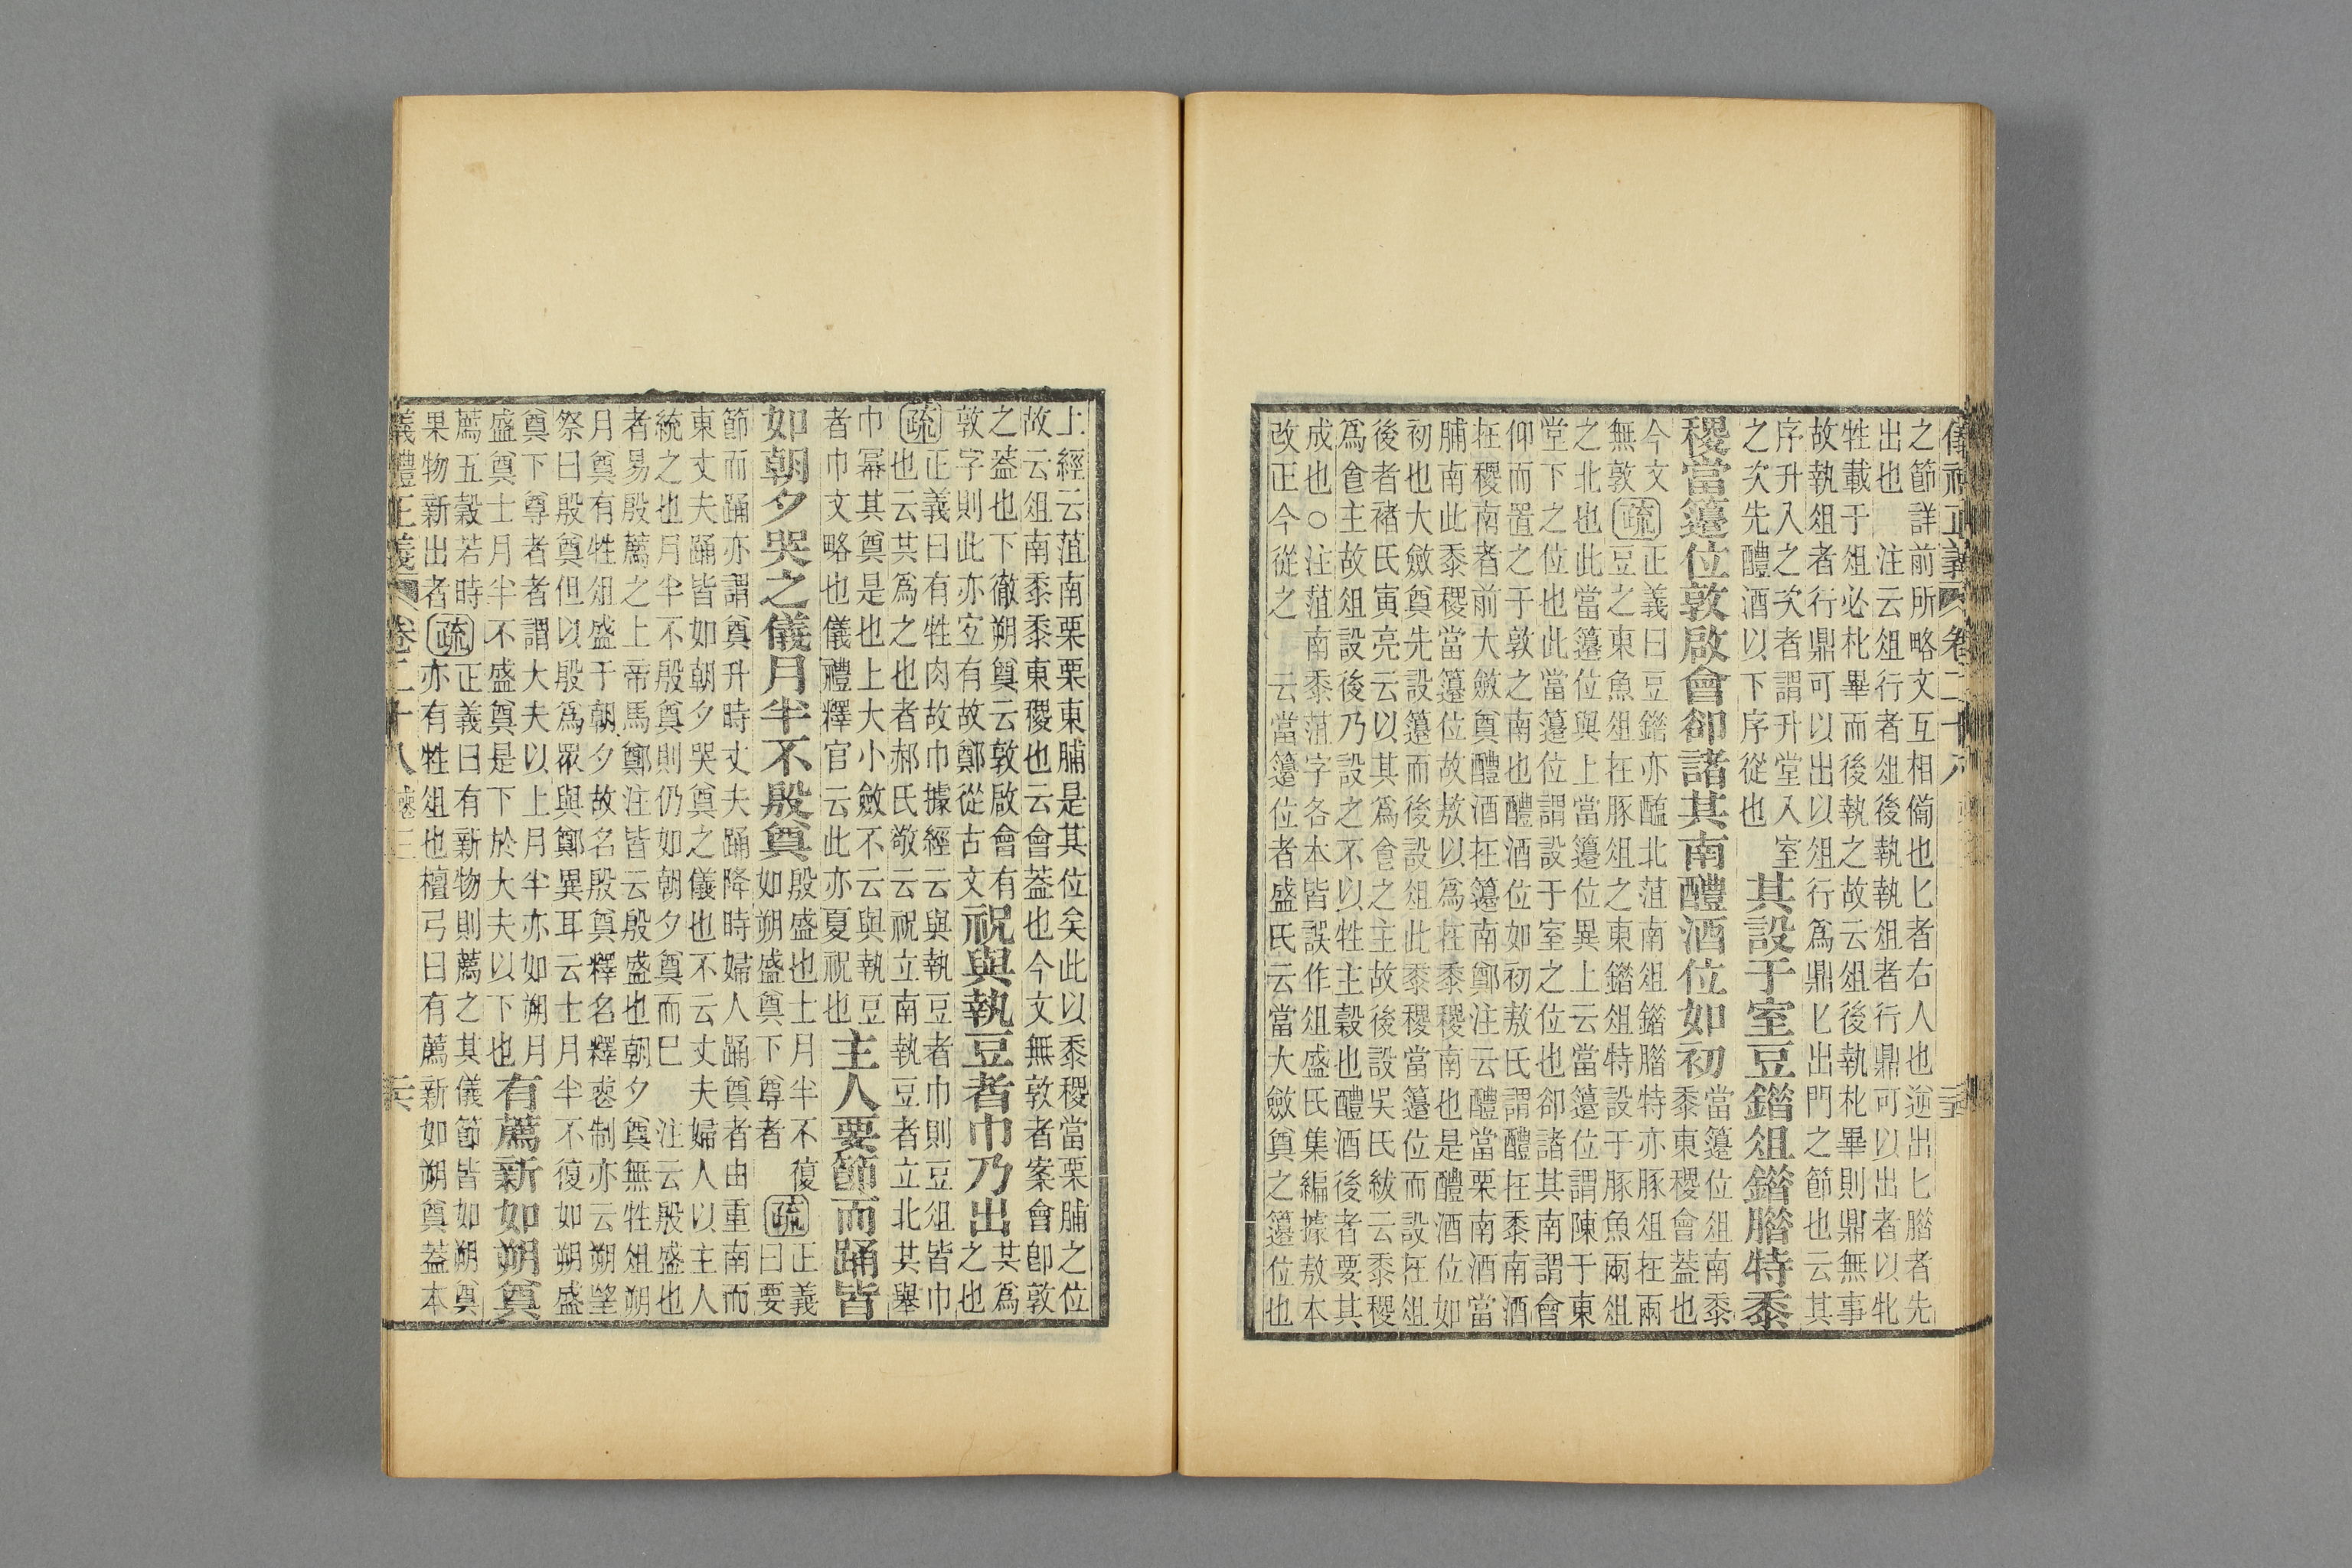 儀禮正義 卷二十八
之節詳前所略文互相備也匕者右人也逆出匕腊者先
出也 注云俎行者俎後執執俎者行鼎可以出者以牝
牲載于俎必朼畢而後執之故云俎後執朼畢則鼎無事
故執俎者行鼎可以出以俎行爲鼎匕出門之節也云其
序升入之次者謂升堂入室
之次先醴酒以下序從也
其設于室豆錯俎錯腊特黍
稷當籩位敦啟會卻諸其南醴酒位如初
當籩位俎南黍
黍東稷會蓋也
今文
無敦
疏
正義曰豆錯亦醢北菹南俎錯腊特亦豚俎在兩
豆之東魚俎在豚俎之東錯俎特設于豚魚兩俎
之北也此當籩位與上當籩位異上云當籩位謂陳于東
堂下之位也此當籩位謂設于室之位也卻諸其南謂會
仰而置之于敦之南也醴酒位如初敖氏謂醴在黍南酒
在稷南者前大斂奠醴酒在籩南鄭注云醴當栗南酒當
脯南此黍稷當籩位故敖以爲在黍稷南也是醴酒位如
初也大斂奠先設籩而後設俎此黍稷當籩位而設在俎
後者褚氏寅亮云以其爲食之主故後設吳氏紱云黍稷
爲食主故俎設後乃設之不以牲主穀也醴酒後者要其
成也○注菹南黍菹字各本皆誤作俎盛氏集編據敖本
改正今從之 云當籩位者盛氏云當大斂奠之籩位也
上經云菹南栗栗東脯是其位矣此以黍稷當栗脯之位
故云俎南黍黍東稷也云會蓋也今文無敦者案會卽敦
之蓋也下徹朔奠云敦啟會有
敦字則此亦宜有故鄭從古文
祝與執豆者巾乃出
共爲
之也
疏
正義曰有牲肉故巾據經云與執豆者巾則豆俎皆巾
也云共爲之也者郝氏敬云祝立南執豆者立北共舉
巾冪其奠是也上大小斂不云與執豆
者巾文略也儀禮釋官云此亦夏祝也
主人要節而踊皆
如朝夕哭之儀月半不殷奠
殷盛也士月半不復
如朔盛奠下尊者
疏
正義
曰要
節而踊亦謂奠升時丈夫踊降時婦人踊奠者由重南而
東丈夫踊皆如朝夕哭奠之儀也不云丈夫婦人以主人
統之也月半不殷奠則仍如朝夕奠而已 注云殷盛也
者易殷薦之上帝馬鄭注皆云殷盛也朝夕奠無牲俎朔
月奠有牲俎盛于朝夕故名殷奠釋名釋喪制亦云朔望
祭曰殷奠但以殷爲衆與鄭異耳云士月半不復如朔盛
奠下尊者者謂大夫以上月半亦如朔月
盛奠士月半不盛奠是下於大夫以下也
有薦新如朔奠
薦五穀若時
果物新出者
疏
正義曰有新物則薦之其儀節皆如朔奠
亦有牲俎也檀弓曰有薦新如朔奠蓋本
儀禮正義 卷二十八 喪三